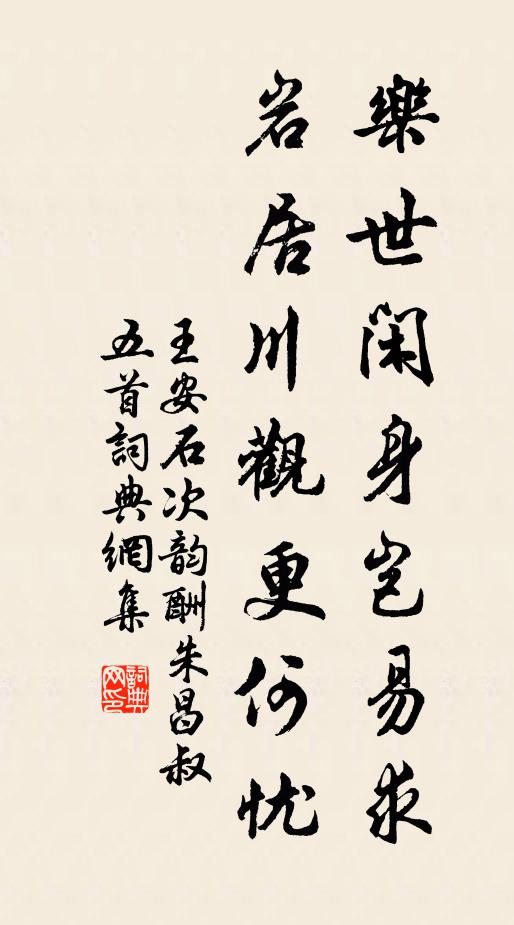 樂世閑身岂易求
岩居川觀更何忧
王安石次韵酬朱昌叔
五首詞典網集
詞典
网印